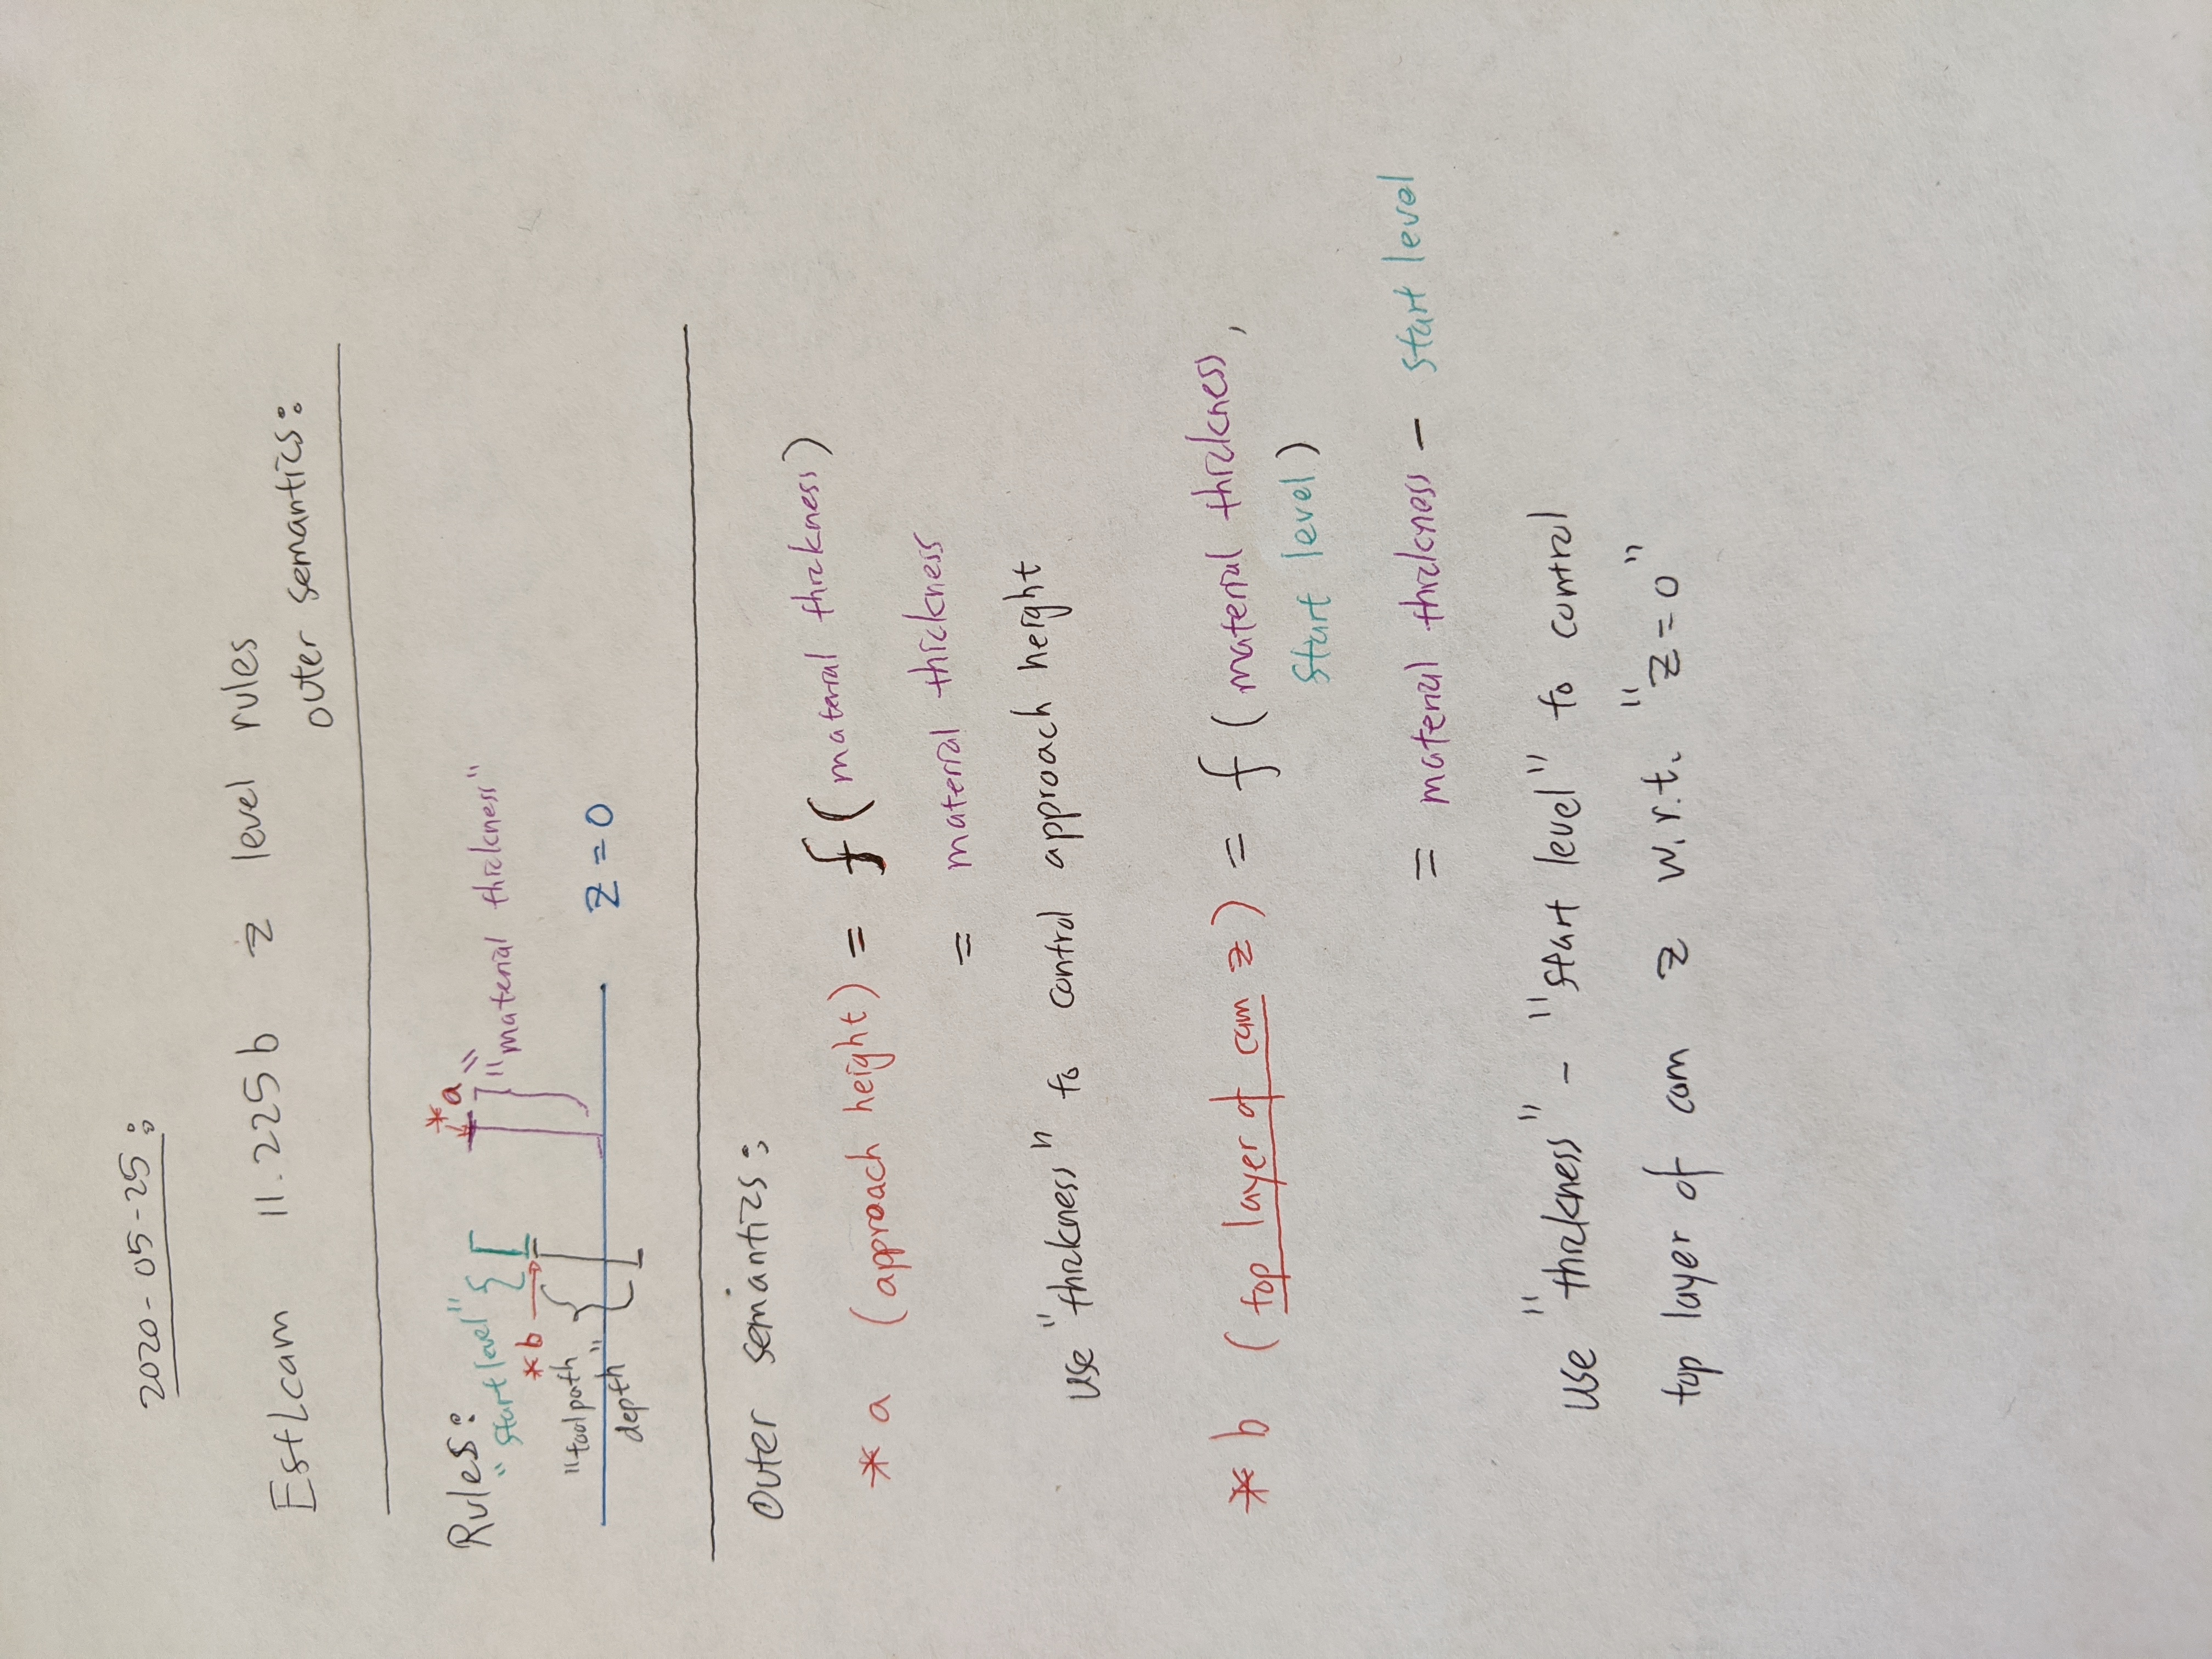 2020-05-25:
Estlcam 11.225b z level rules
outer semantics:
Rules:
"start level"
*a
"material thickness"
*b
"toolpath
depth"
z=0
Outer semantics:
*a (approach height) = f(material thickness)
= material thickness
use "thickness" to control approach height
*b (top layer of cam z) = f(material thickness,
start level)
= material thickness - start level
use "thickness" - "start level" to control
top layer of cam z w.r.t. "z=0"